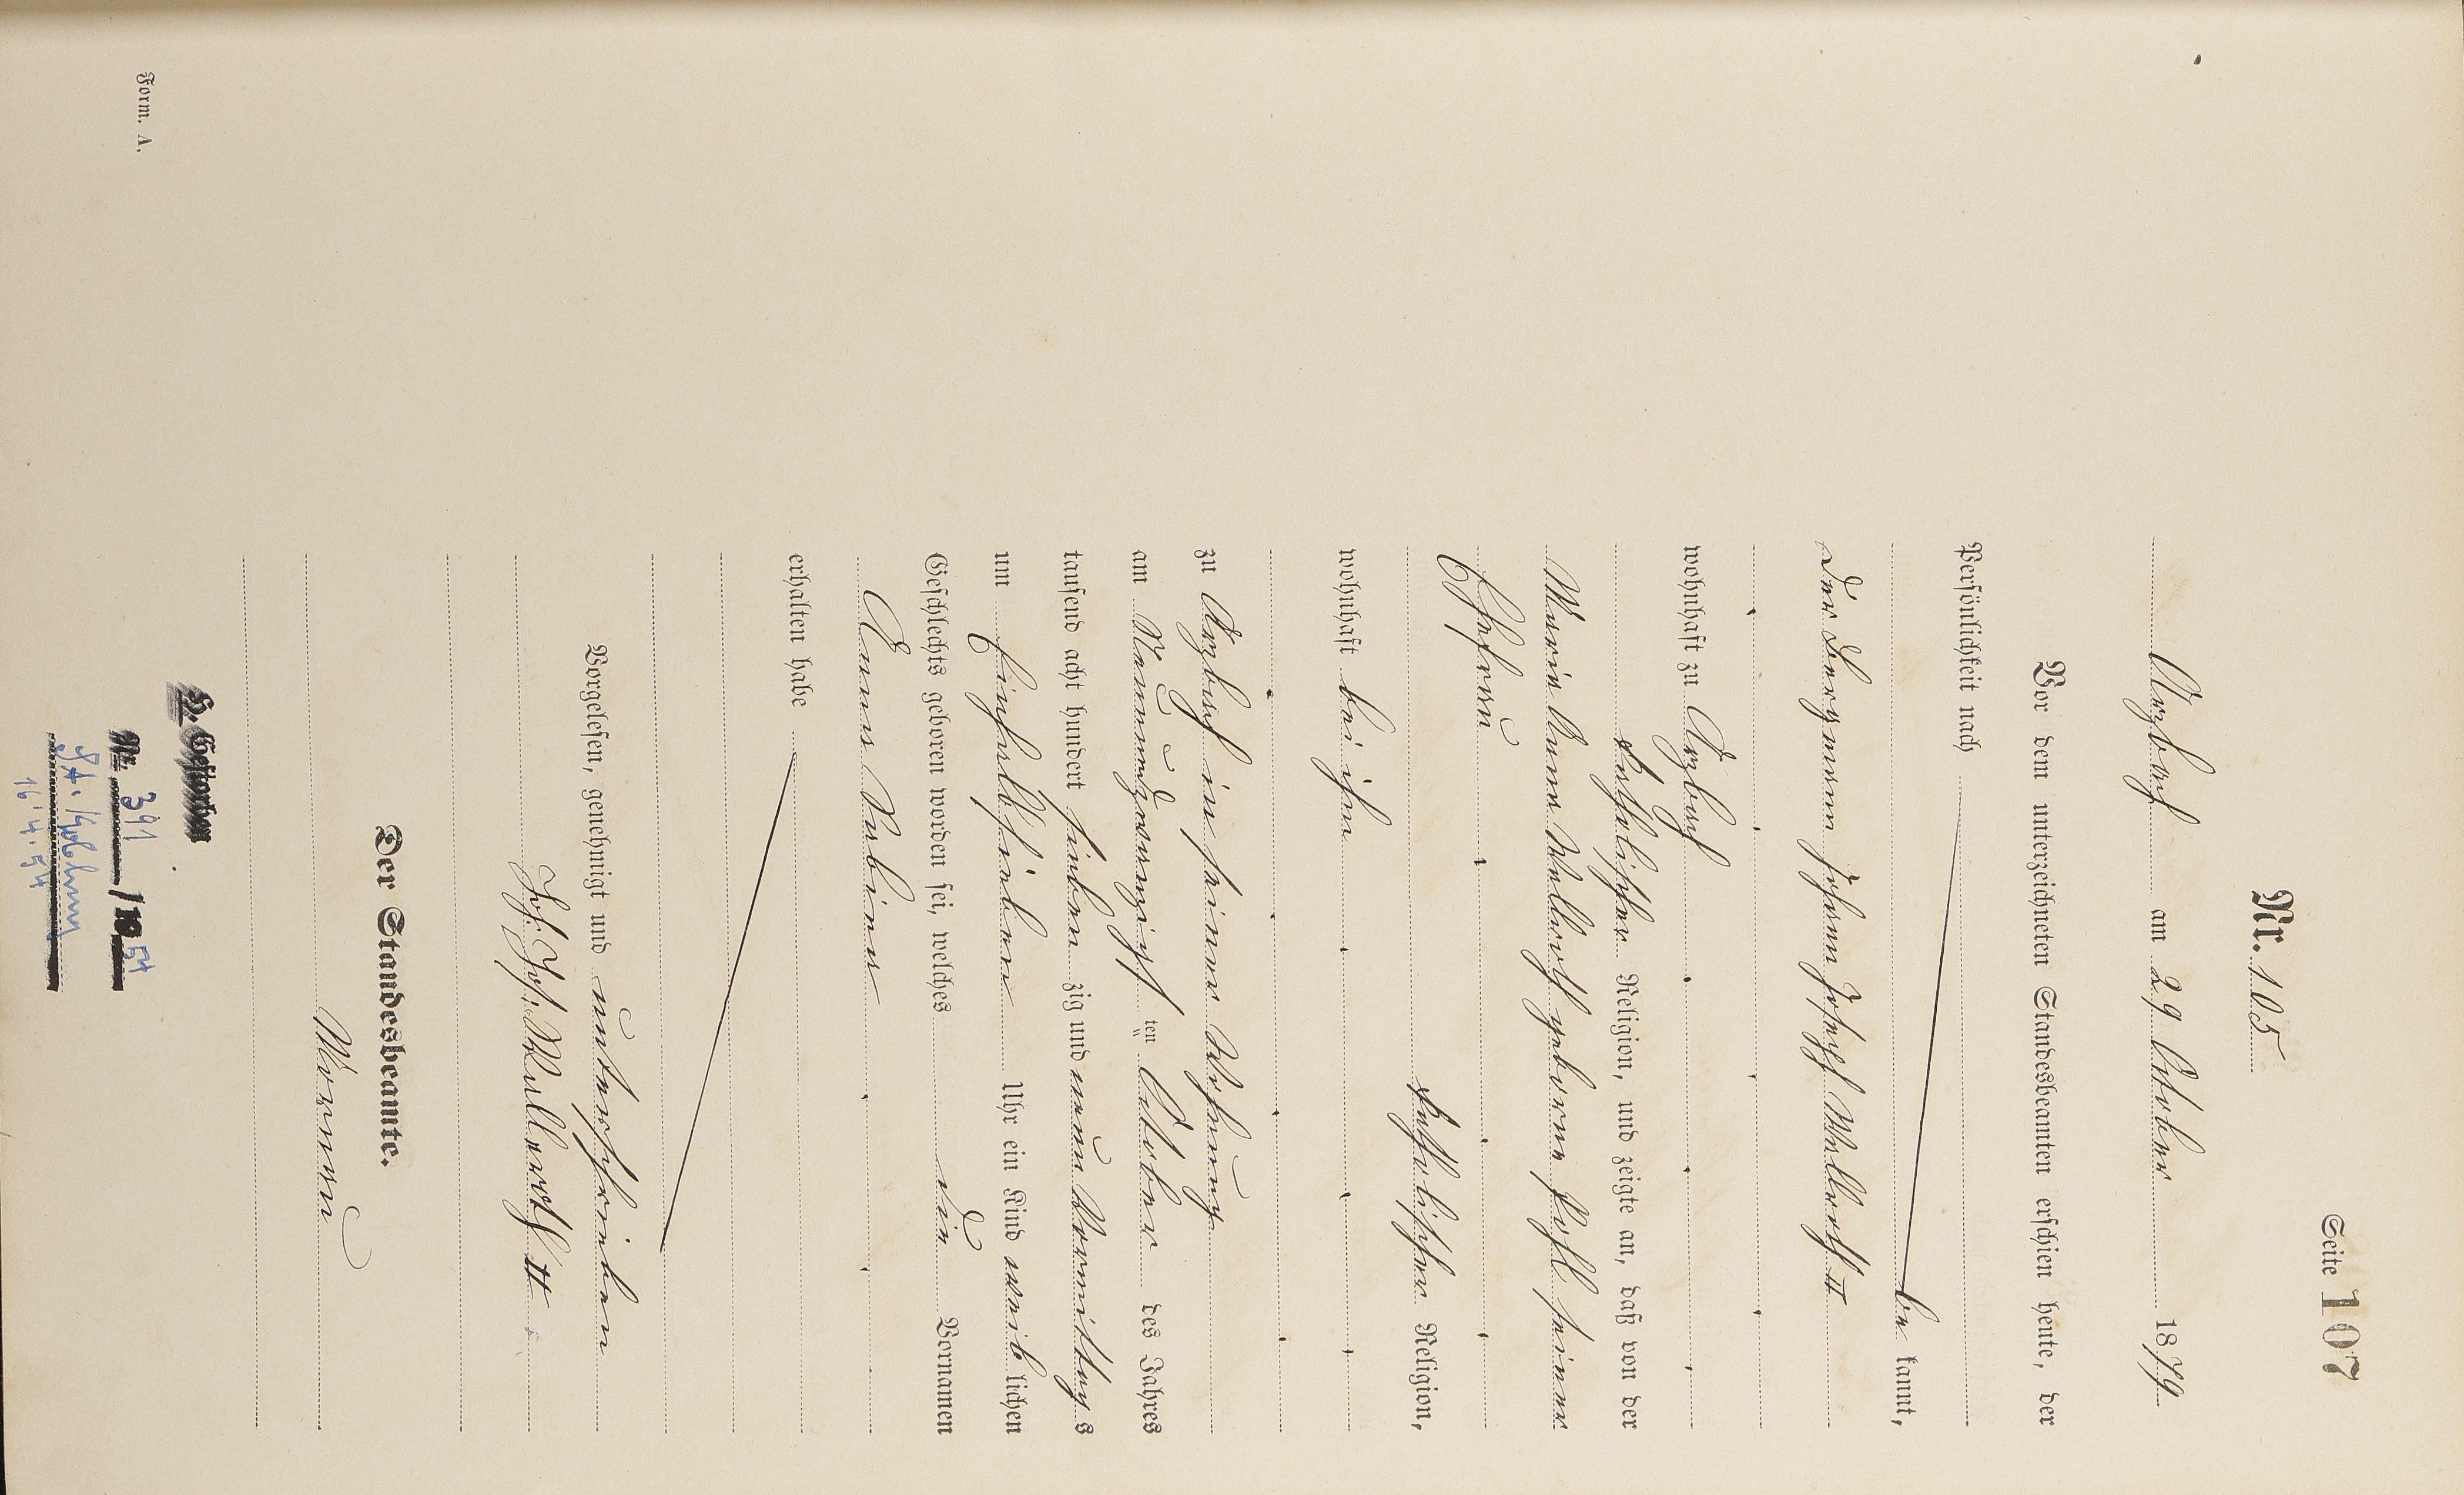 Seite 107
Nr. 105
Arzbach am 29 October 1879
Vor dem unterzeichneten Standesbeamten erschien heute, der
Persönlichkeit nach
be kannt,
der Bergmann Johann Joseph Wellroth II
wohnhaft zu Arzbach
katholischer Religion, und zeigte an, daß von der
Marie Anna geborne seiner
Ehefrau
katholischer Religion,
wohnhaft bei ihm
zu Arzbach in seiner Wohnung
am Neunundzwanzigsten ten October des Jahres
tausend acht hundert sieben zig und neun Vormittag s
um einhalb sieben Uhr ein Kind weib lichen
Geschlechts geboren worden sei, welches die Vornamen
Anna Sabina
erhalten habe
Vorgelesen, genehmigt und unterschrieben
Joh. Jos. II
Der Standesbeamte.
H. Gestorben
Nr. 391 /19 54
St.
16.4.54
Form. A.